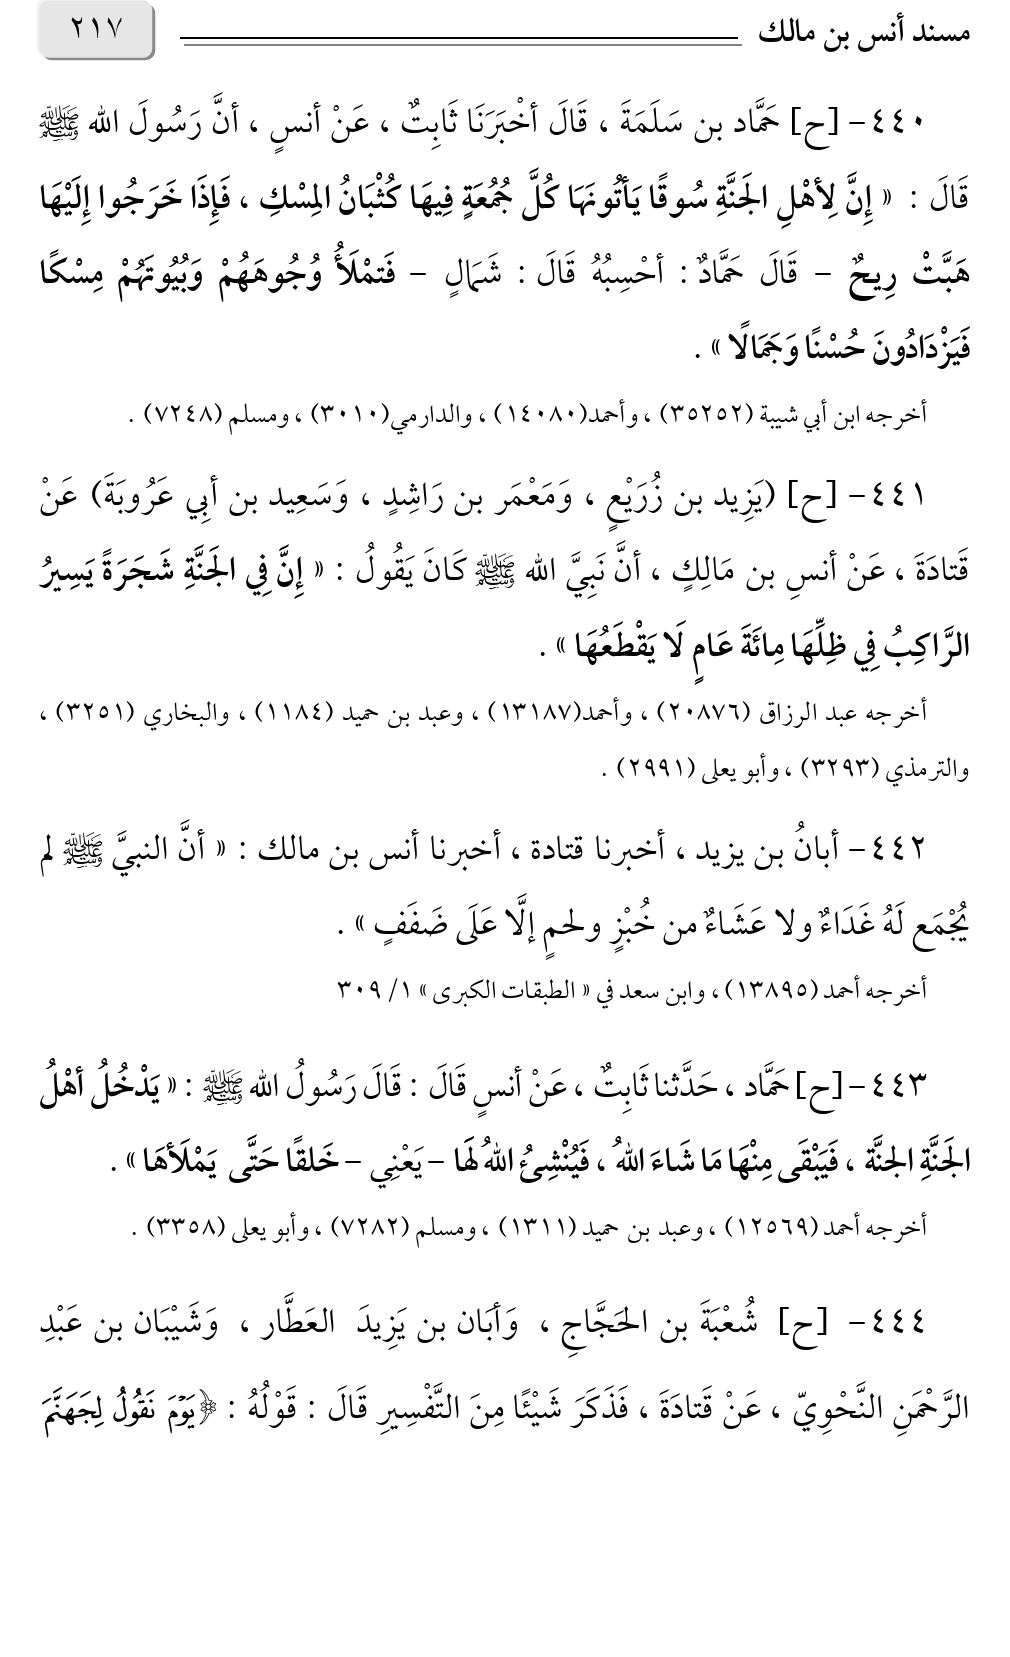 مسند أنس بن مالك ٢١٧
٤٤٠- [ح] حَمَّاد بن سَلَمَةَ ، قَالَ أخْبَرَنَا ثَابِتٌ ، عَنْ أنسٍ ، أنَّ رَسُولَ الله ﷺ
قَالَ : « إِنَّ لِأهْلِ الجَنَّةِ سُوقًا يَأتُونهَا كُلَّ جُمُعَةٍ فِيهَا كُثْبَانُ المِسْكِ ، فَإِذَا خَرَجُوا إِلَيْهَا
هَبَّتْ رِيحٌ – قَالَ حَمَّادٌ : أحْسِبُهُ قَالَ : شَمَالٍ – فَتمْلَأُ وُجُوهَهُمْ وَبُيُوتَهُمْ مِسْكًا
فَيَزْدَادُونَ حُسْنًا وَجَمَالًا » .
أخرجه ابن أبي شيبة (٣٥٢٥٢) ، وأحمد(١٤٠٨٠) ، والدارمي(٣٠١٠) ، ومسلم (٧٢٤٨) .
٤٤١- [ح] (يَزِيد بن زُرَيْعٍ ، وَمَعْمَر بن رَاشِدٍ ، وَسَعِيد بن أبِي عَرُوبَةَ) عَنْ
قَتادَةَ ، عَنْ أنسِ بن مَالِكٍ ، أنَّ نَبِيَّ الله ﷺ كَانَ يَقُولُ : « إِنَّ فِي الجَنَّةِ شَجَرَةً يَسِيرُ
الرَّاكِبُ فِي ظِلِّهَا مِائَةَ عَامٍ لَا يَقْطَعُهَا » .
أخرجه عبد الرزاق (٢٠٨٧٦) ، وأحمد(١٣١٨٧) ، وعبد بن حميد (١١٨٤) ، والبخاري (٣٢٥١) ،
والترمذي (٣٢٩٣) ، وأبو يعلى (٢٩٩١) .
٤٤٢- أبانُ بن يزيد ، أخبرنا قتادة ، أخبرنا أنس بن مالك : « أنَّ النبيَّ ﷺ لم
يُجْمَع لَهُ غَدَاءٌ ولا عَشَاءٌ من خُبْزٍ ولحمٍ إلَّا عَلَى ضَفَفٍ » .
أخرجه أحمد (١٣٨٩٥) ، وابن سعد في « الطبقات الكبرى » ١/ ٣٠٩
٤٤٣- [ح] حَمَّاد ، حَدَّثنا ثَابِتٌ ، عَنْ أنسٍ قَالَ : قَالَ رَسُولُ الله ﷺ : « يَدْخُلُ أهْلُ
الجَنَّةِ الجنَّة ، فَيَبْقَى مِنْهَا مَا شَاءَ اللهُ ، فَيُنْشِئُ اللهُ لهَا – يَعْنِي – خَلقًا حَتَّى يَمْلَأهَا » .
أخرجه أحمد (١٢٥٦٩) ، وعبد بن حميد (١٣١١) ، ومسلم (٧٢٨٢) ، وأبو يعلى (٣٣٥٨) .
٤٤٤- [ح] شُعْبَةَ بن الحَجَّاجِ ، وَأبَان بن يَزِيدَ العَطَّار ، وَشَيْبَان بن عَبْدِ
الرَّحْمَنِ النَّحْوِيّ ، عَنْ قَتادَةَ ، فَذَكَرَ شَيْئًا مِنَ التَّفْسِيرِ قَالَ : قَوْلُهُ : ﴿يَوْمَ نَقُولُ لِجَهَنَّمَ